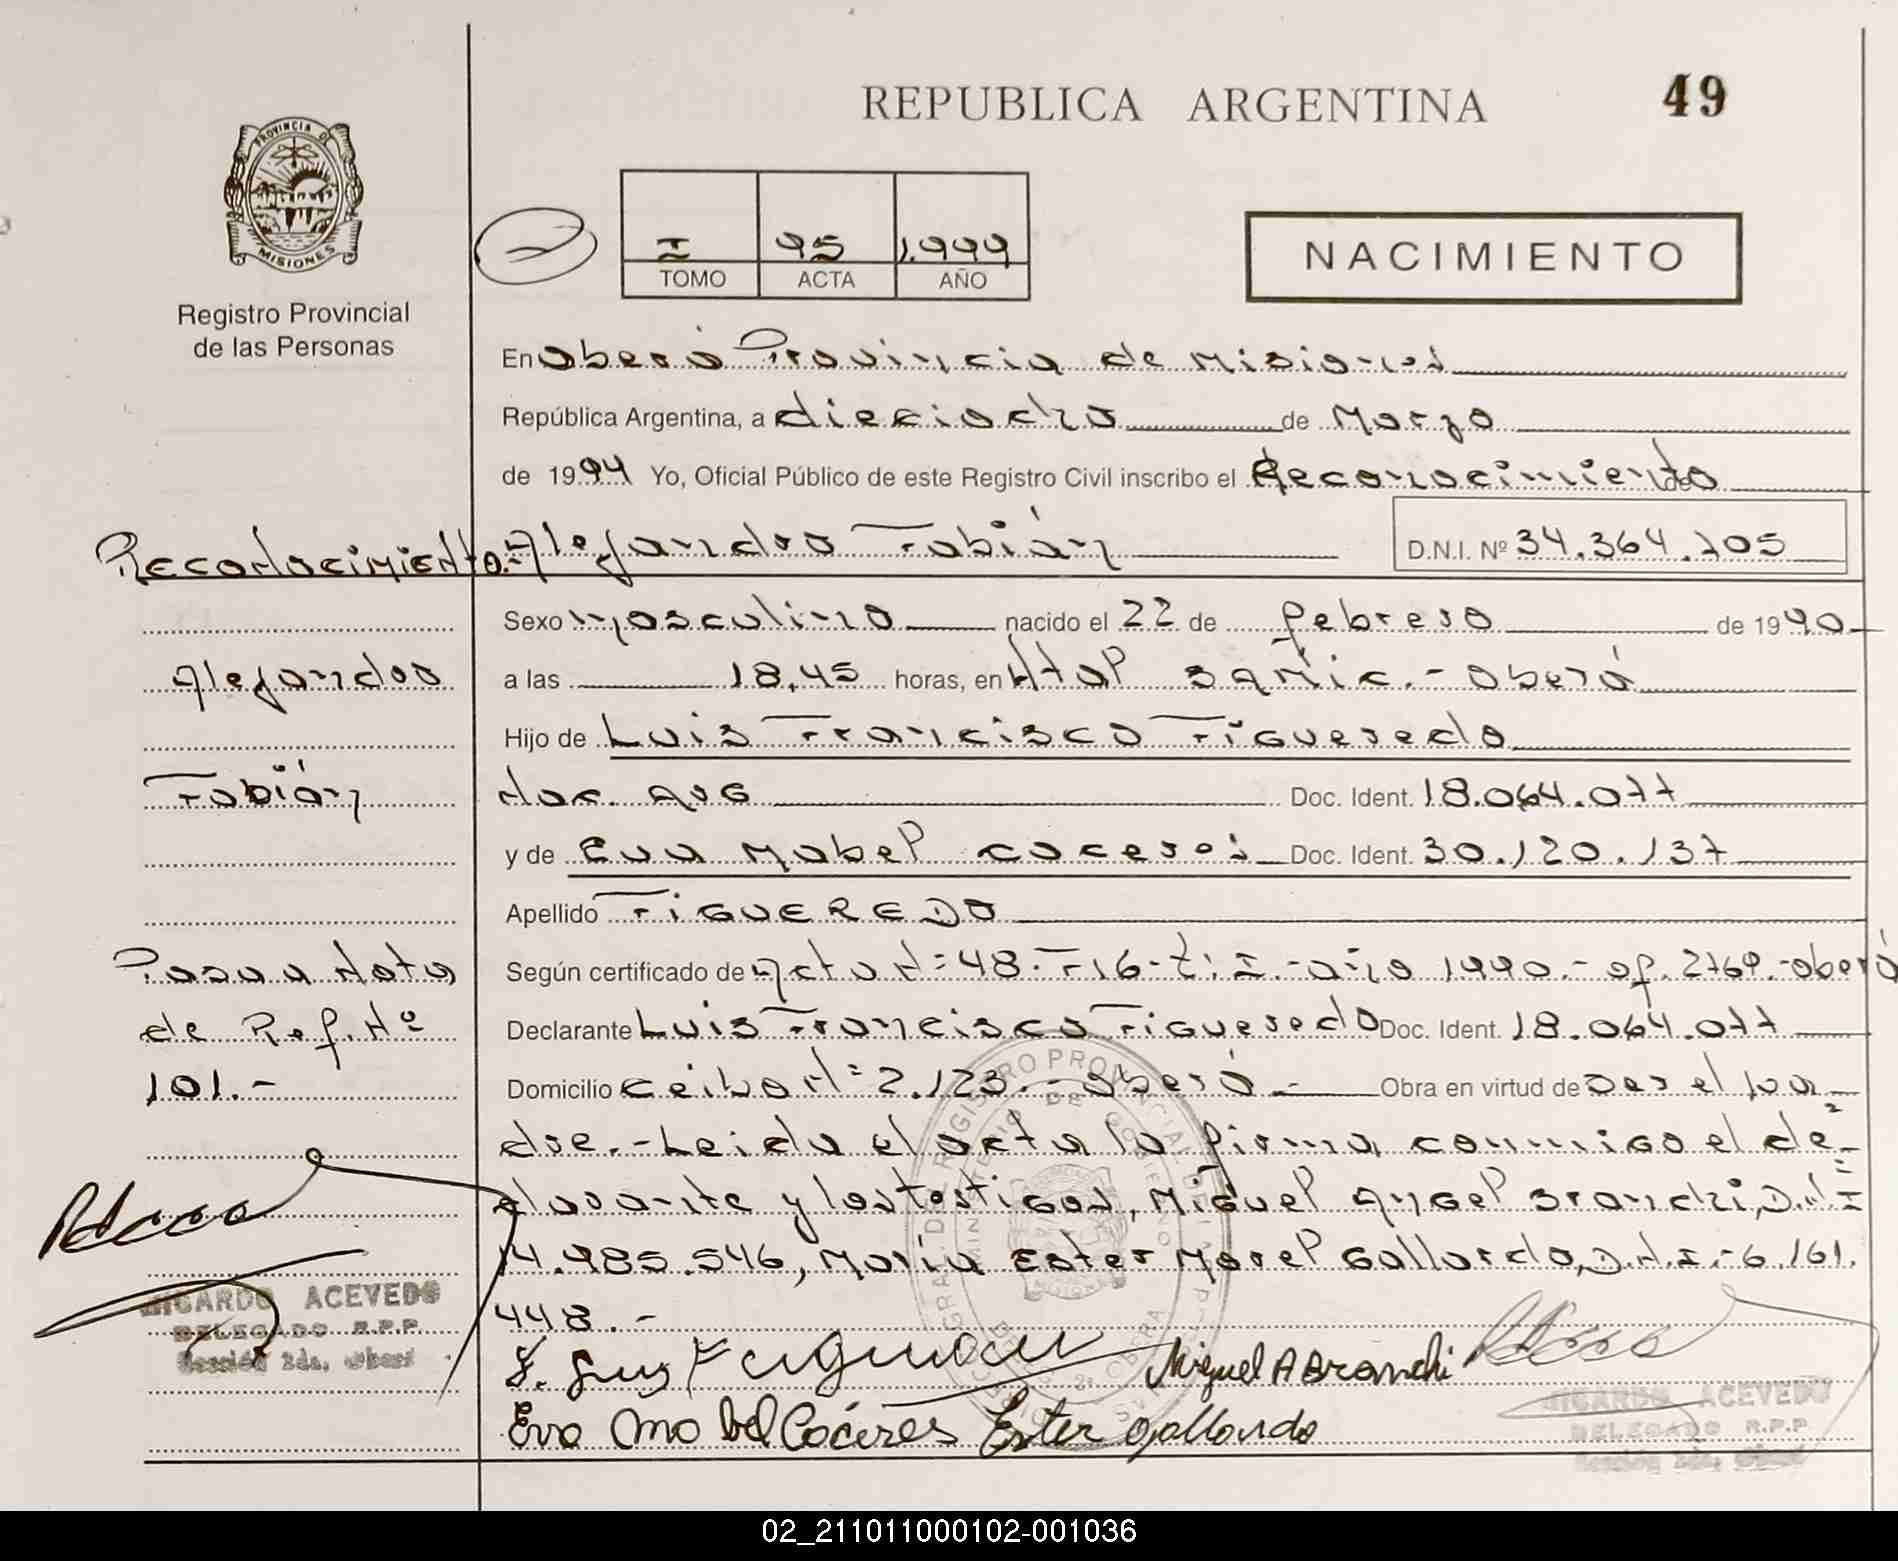 REPUBLICA ARGENTINA
49
PROVINCIA DE MISIONES
Registro Provincial
de las Personas
I 95 1.994
TOMO ACTA AÑO
NACIMIENTO
En Oberá Provincia de Misiones
República Argentina, a dieciocho de Marzo
de 1994 Yo, Oficial Público de este Registro Civil inscribo el Reconocimiento
Reconocimiento.-
Alejandro Fabián
D.N.I. Nº 34.364.105
Sexo masculino nacido el 22 de febrero de 1990
Alejandro
a las 18,45 horas, en Htal Samic.- Oberá
Hijo de Luis Francisco Figueredo
Fabián
Nac. Arg Doc. Ident. 18.064.077
y de Eva Mabel Caceres Doc. Ident. 30.120.137
Apellido FIGUEREDO
Pasa a Nota
Según certificado de Acta N=48.F16-t:I.-año 1990.-of.2769.-Oberá
de Ref. Nº
Declarante Luis Francisco Figueredo Doc. Ident. 18.064.077
101.-
Domicilio Ceibo N=2.123.- Oberá.- Obra en virtud de ser el pa
dre.-Leida el acta la firma conmigo el de=
clarante y los testigos, Miguel Angel Branchi, D.N.I
14.985.546, María Ester Morel Gallardo, D.N.I.-6.161.
448.-
Miguel A Branchi
Eva Mabel Cáceres Ester Gallardo
RICARDO ACEVEDO
DELEGADO R.P.P.
Sección 2da. Oberá
RICARDO ACEVEDO
DELEGADO R.P.P
Sección 2da. Oberá
02_211011000102-001036